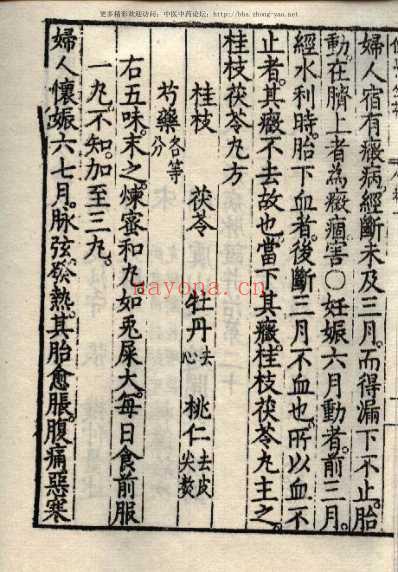 更多精彩欢迎访问：中医中药论坛：http://bbs.zhong-yao.net/
婦人宿有癥病經斷未及三月而得漏下不止胎
動在臍上者為癥痼害〇妊娠六月動者前三月
經水利時胎下血者後斷三月不血也所以血不
止者其癥不去故也當下其癥桂枝茯苓九主之
桂枝茯苓九方
桂枝 茯苓 牡丹去心 桃仁去皮尖熬
芍藥各等分
右五味末之煉蜜和九如兎屎大每日食前服
一九不知加至三九
婦人懷娠六七月脉弦發熱其胎愈脹腹痛惡寒
nayona.cn